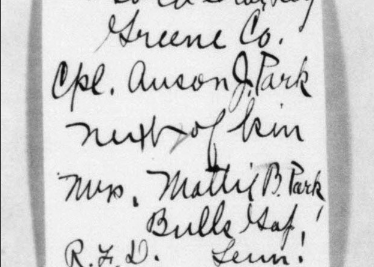 Greene Co.
Cpl. Anson J. Park
next of kin
Mrs. Mattie B. Park
Bulls Gap,
R.F.D. Tenn.